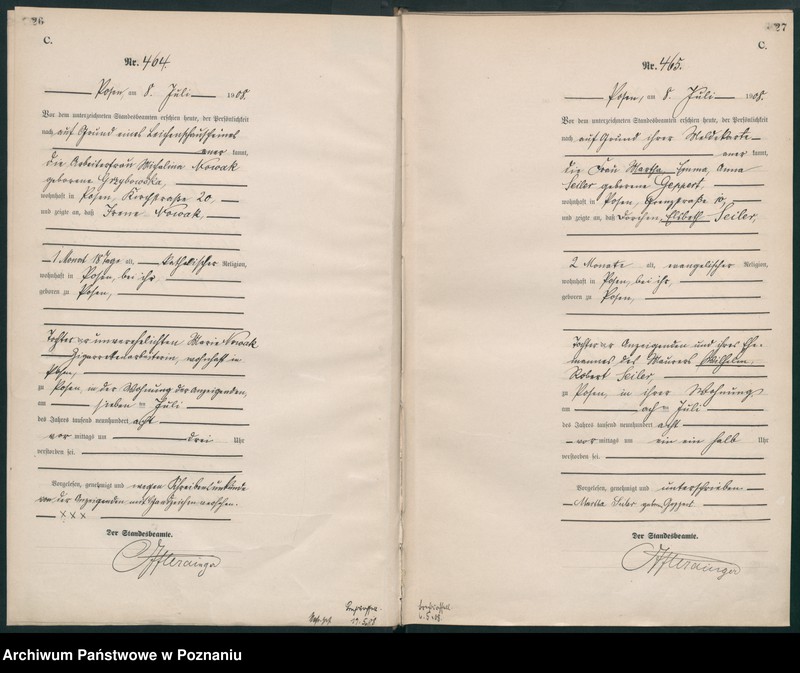 26
C.
Nr. 464.
Posen, am 8. Juli 1908.
Vor dem unterzeichneten Standesbeamten erschien heute, der Persönlichkeit
nach auf Grund eines Leichenschauscheines
aner kannt,
die Arbeiterfrau Michalina Nowak
geborene Grzybowska,
wohnhaft in Posen, Kirchstraße 20,
und zeigte an, daß Irene Nowak,
1 Monat 18 Tage alt, katholischer Religion,
wohnhaft in Posen, bei ihr,
geboren zu Posen,
Tochter der unverehelichten Marie Nowak
Zigarettenarbeiterin, wohnhaft in
Posen,
zu Posen, in der Wohnung der Anzeigenden,
am sieben ten Juli
des Jahres tausend neunhundert acht
vor mittags um drei Uhr
verstorben sei.
Vorgelesen, genehmigt und wegen Schreibensunkunde
von der Anzeigenden mit Handzeichen versehen.
XXX
Der Standesbeamte.
27
C.
Nr. 465.
Posen, am 8. Juli 1908.
Vor dem unterzeichneten Standesbeamten erschien heute, der Persönlichkeit
nach auf Grund ihrer Meldekarte
aner kannt,
die Frau Martha Emma Anna
Seiler geborene Geppert,
wohnhaft in Posen, Grenzstraße 10,
und zeigte an, daß Dorchen Elsbeth Seiler,
2 Monate alt, evangelischer Religion,
wohnhaft in Posen, bei ihr,
geboren zu Posen,
Tochter der Anzeigenden und ihres Ehe-
mannes des Maurers Wilhelm
Robert Seiler,
zu Posen, in ihrer Wohnung
am ach ten Juli
des Jahres tausend neunhundert acht
vor mittags um ein ein halb Uhr
verstorben sei.
Vorgelesen, genehmigt und unterschrieben
Martha Seiler geb. Geppert
Der Standesbeamte.
Archiwum Państwowe w Poznaniu